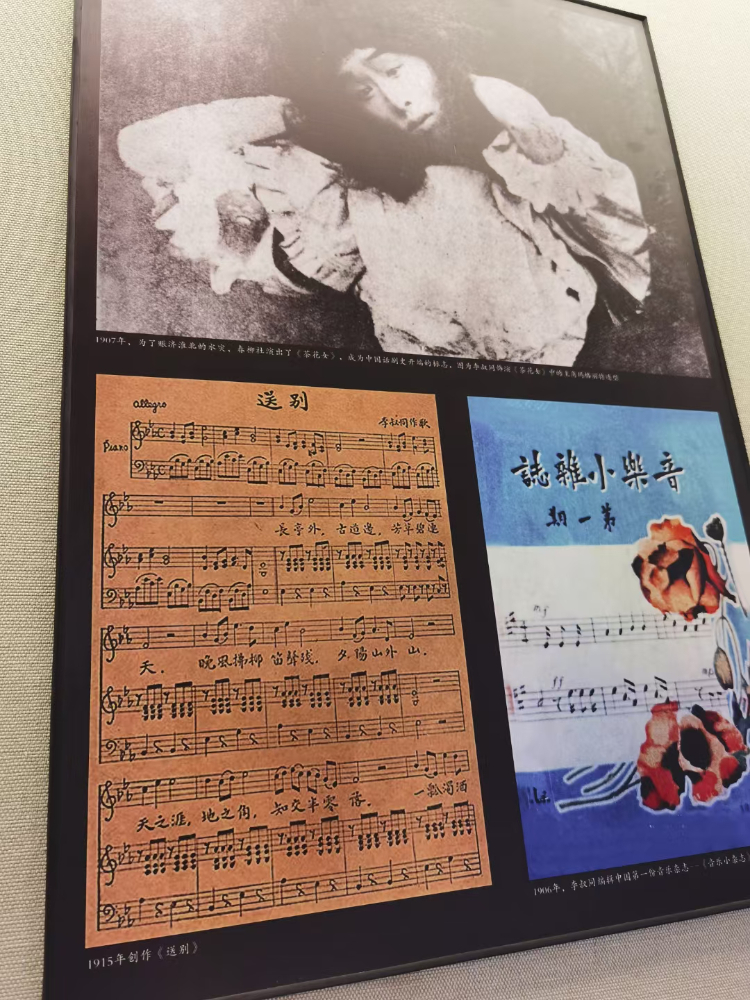 1907年，为了赈济淮北的水灾，春柳社演出了《茶花女》，成为中国话剧史开端的标志，图为李叔同饰演《茶花女》中的女角玛格丽特造型
送别
allegro
李叔同作歌
Piano
長亭外，古道邊，芳草碧連
天．晚風拂柳 笛聲残，夕陽山外 山．
天之涯，地之角，知交半零 落． 一瓢濁酒
1915年创作《送别》
誌雜小樂音
期一第
mf
ff
mp
1906年，李叔同编辑中国第一份音乐杂志—《音乐小杂志》